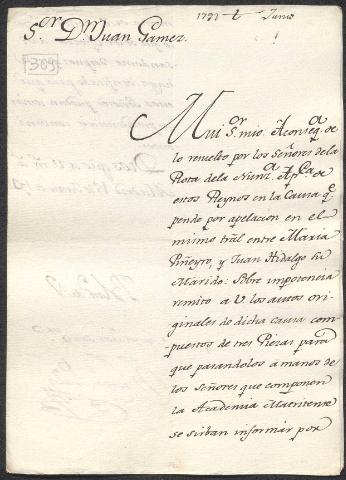 1791 Junio
S.or D.n Juan Gamez.
309
Mui S.or mio. A conseq.a de
lo resuelto por los Señores de la
Rota de la Nunz.a Ap.ca de
estos Reynos en la Causa q.e
pende por apelacion en el
mismo tràl entre Maria
Piñeyro, y Juan Hidalgo su
Marido: Sobre impotencia
remito a V. los autos ori-
ginales de dicha causa com-
puestos de tres Piezas para
que pasandolos a manos de
los Señores que componen
la Academia Matritense
se sirban informar por